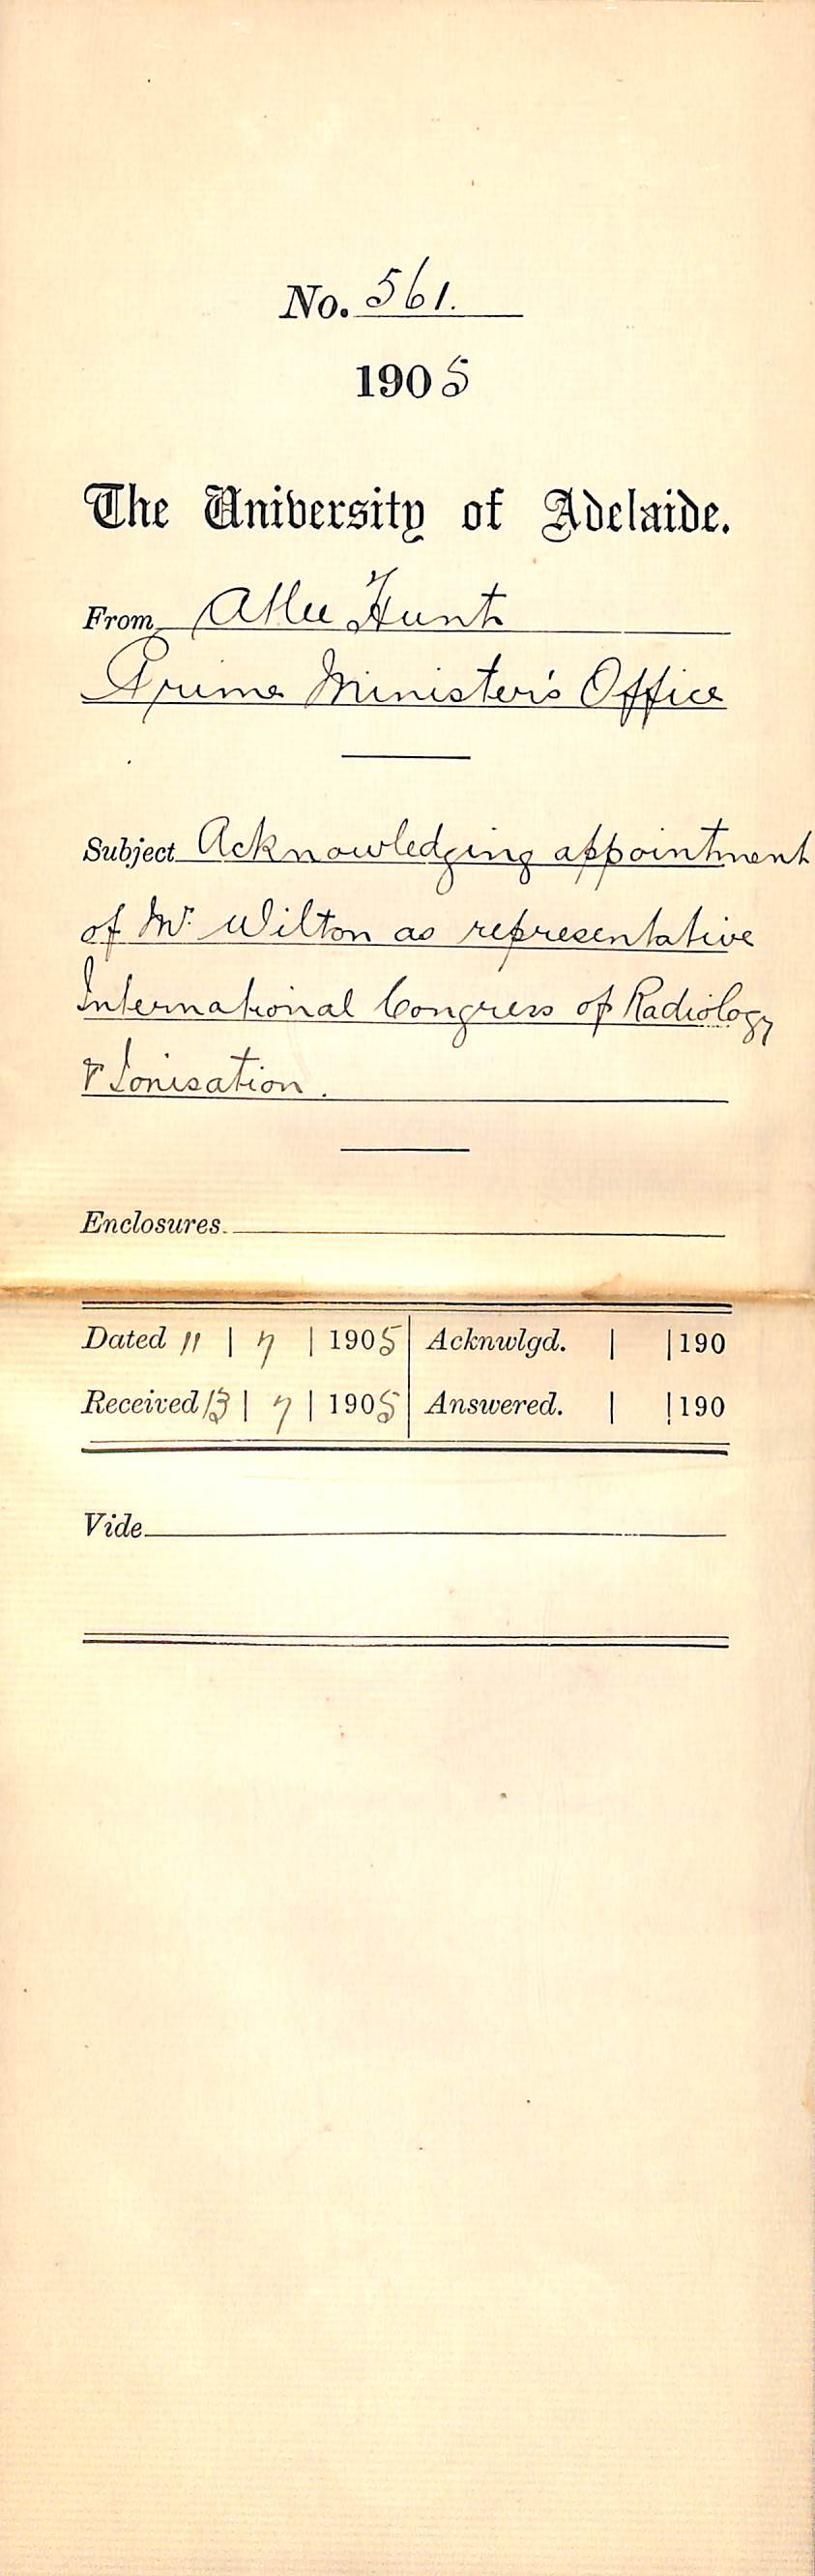 No. 561.
1905
The University of Adelaide.
From Atlee Hunt
Prime Minister's Office
Subject Acknowledging appointment
of Mr. Wilton as representative
International Congress of Radiology
& Ionisation.
Enclosures
Dated 11 | 7 | 1905 Acknwlgd. | | 190
Received 13 | 7 | 1905 Answered. | | 190
Vide